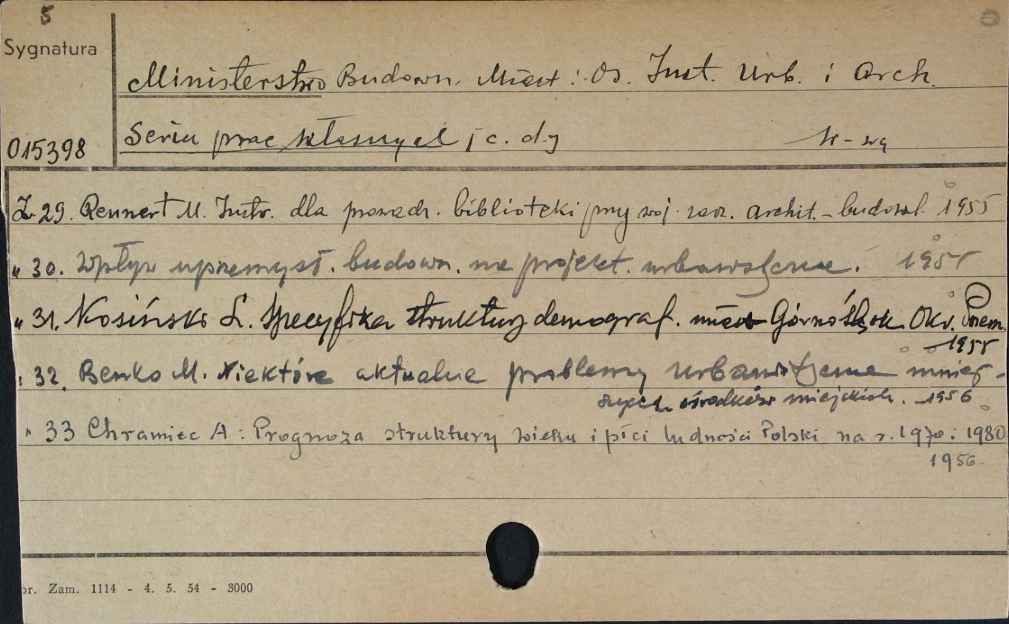 5
Sygnatura
Ministerstwo Budown. Miast i Os. Inst. Urb. i Arch.
015398
Seria prac własnych / c. d.
W-wa
Z 29. Rennert M. Instr. dla prowadz. biblioteki przy woj. zarz. archit.-budowl. 1955
" 30. Wpływ uprzemysł. budown. na projekt. urbanistyczne. 1955
" 31. Kosiński L. Specyfika struktury demograf. miast Górnośląsk. Okr. Przem.
1955
" 32. Benko M. Niektóre aktualne problemy urbanistyczne mniej-
szych ośrodków miejskich. 1956
" 33 Chramiec A: Prognoza struktury wieku i płci ludności Polski na r. 1970 i 1980
1956
or. Zam. 1114 - 4. 5. 54 - 3000